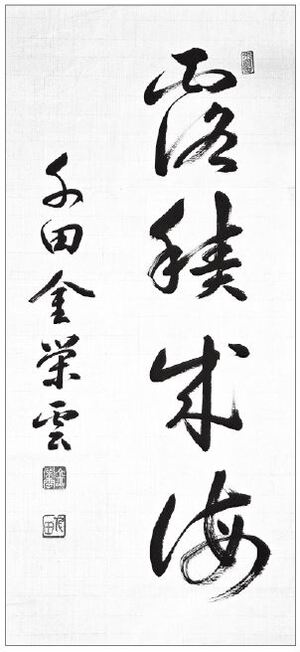 露積成海
田金榮雲